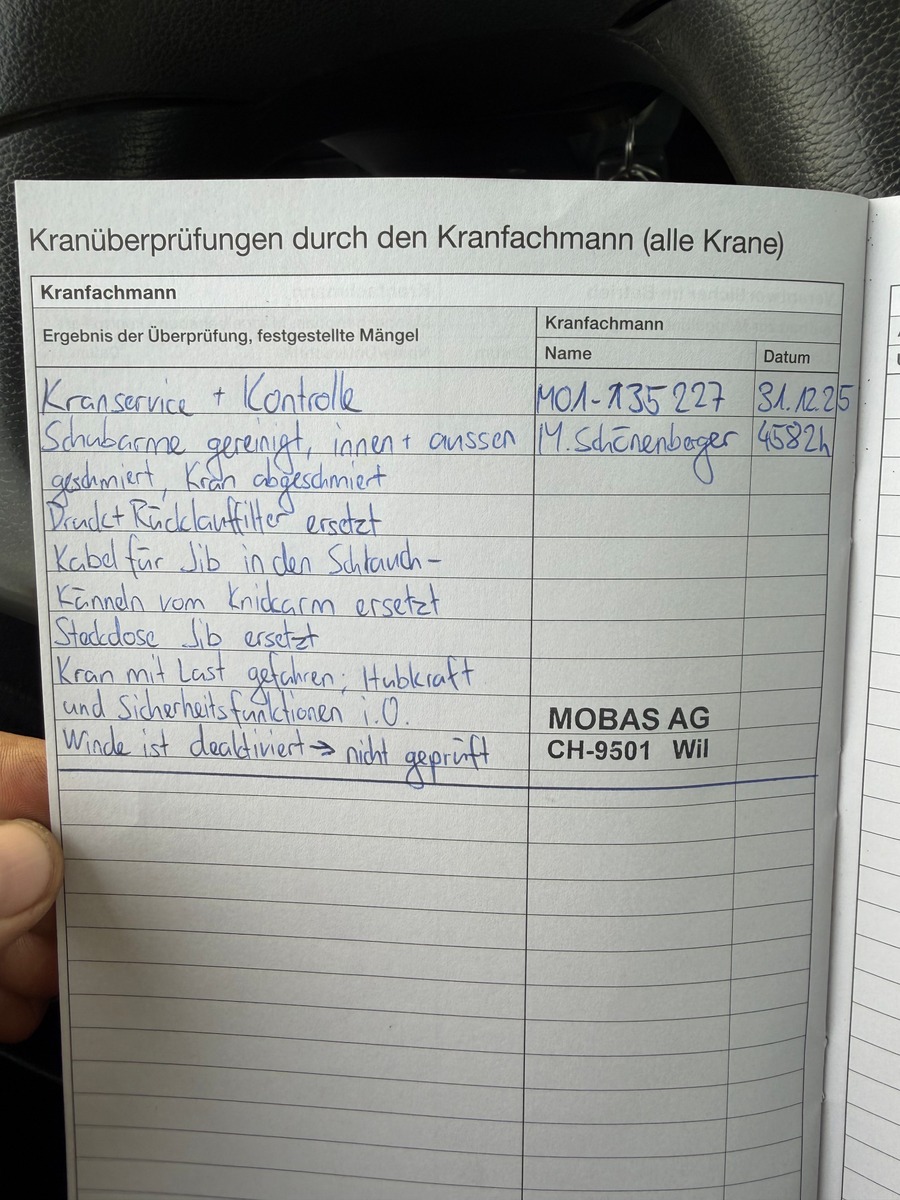 Kranüberprüfungen durch den Kranfachmann (alle Krane)
Kranfachmann
Ergebnis der Überprüfung, festgestellte Mängel
Kranfachmann
Name Datum
Kranservice + Kontrolle M01-135227 31.12.25
Schubarme gereinigt, innen + aussen M. Schönenberger 4582h
geschmiert, Kran abgeschmiert
Druck+ Rücklauffilter ersetzt
Kabel für Jib in den Schlauch-
Känneln vom Knickarm ersetzt
Steckdose Jib ersetzt
Kran mit Last gefahren; Hubkraft
und Sicherheitsfunktionen i.O. MOBAS AG
Winde ist deaktiviert → nicht geprüft CH-9501 Wil